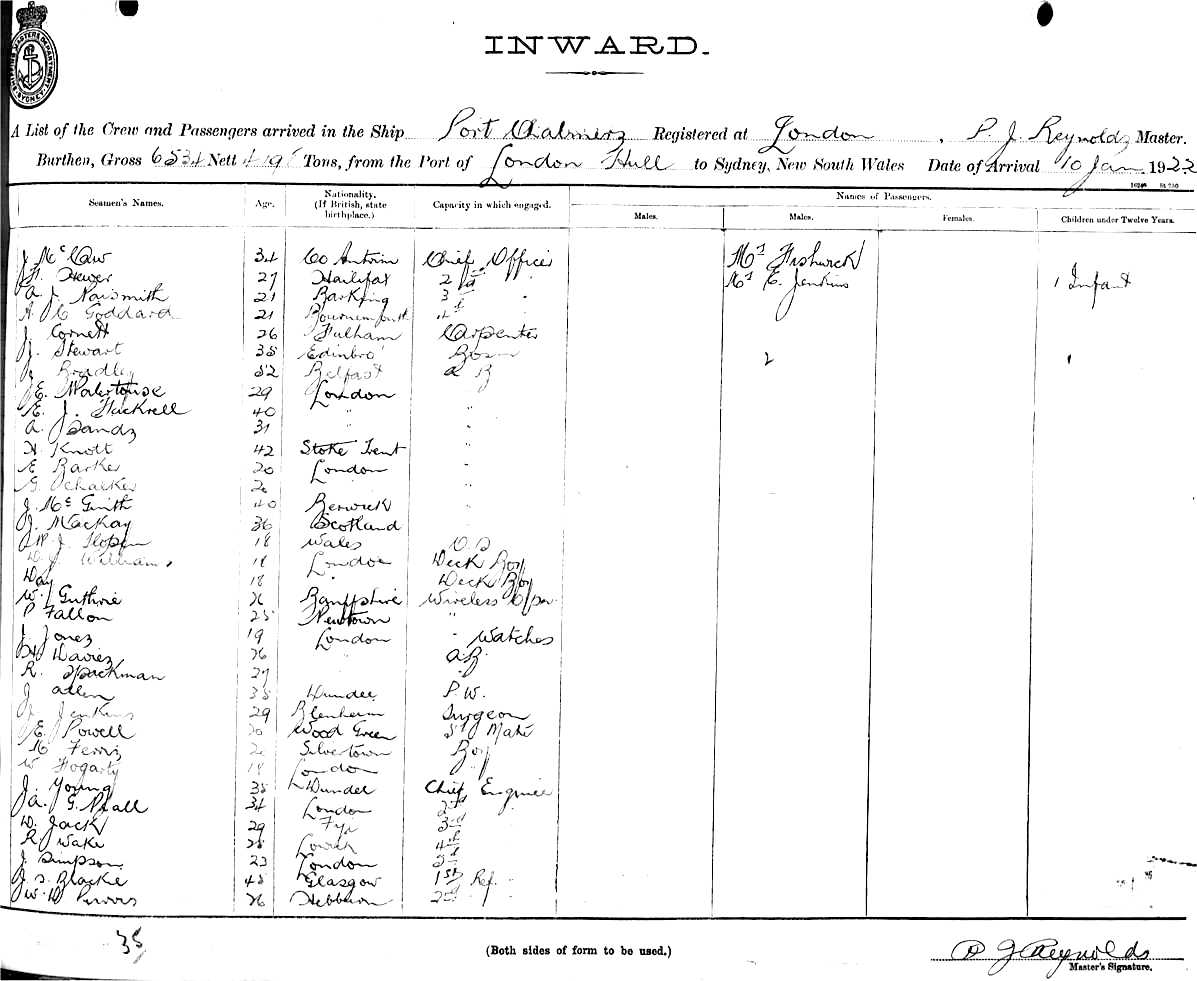 SHIPPING MASTERS DEPARTMENT SYDNEY
INWARD.
A List of the Crew and Passengers arrived in the Ship Port Chalmers Registered at London , P. J. Reynolds Master.
Burthen, Gross 6534 Nett Tons, from the Port of London Hull to Sydney, New South Wales Date of Arrival 10 Jan 1922
Names of Passengers.
Seamen's Names. Age. Nationality. (If British, state birthplace.) Capacity in which engaged. Males. Males. Females. Children under Twelve Years.
J McCaw 34 Co Antrim Chief Officer Mrs Fishwick
27 Halifax 2nd Mrs E. Jenkins 1 Infant
A. J. Naismith 21 Barking 3rd "
A C Goddard 21 Bournemouth 4th
J. Cornett 26 Fulham Carpenter
J. Stewart 35 Edinbro' Bosn 2 1
Bradley 52 Belfast A B
E. Waterhouse 29 London "
E. J. Hackrell 40 " "
A. Sands 31 " "
H Knott 42 Stoke Trent "
E Barker 20 London "
G. Chalker "
J. Mc 40 Berwick "
J. Mackay 36 Scotland "
W J 18 Wales O.S
D. J. Williams 18 London Deck Boy
Day 18 Deck Boy
W. Guthrie 26 Banffshire Wireless Oper
P Fallon 25 Newtown "
J. Jones 19 London " Watches
Davies 26 " A.B.
R. Spackman 27 "
J Allen 35 Dundee P.W.
J. Jenkins 29 Blenheim Surgeon
E. Powell 20 Wood Green Mate
Ferris Silvertown Boy
W Fogarty 18 London "
J. Young 35 Dundee Chief Engineer
A. G. 34 London 2nd
D. Jack 29 Fife 3rd
R. Wake 25 4th
J. Simpson 23 London 5th
J. S. Blackie 45 Glasgow 1st Ref.
W. D Purves 26 Hebburn 2nd "
35
(Both sides of form to be used.)
P J Reynolds
Master's Signature.